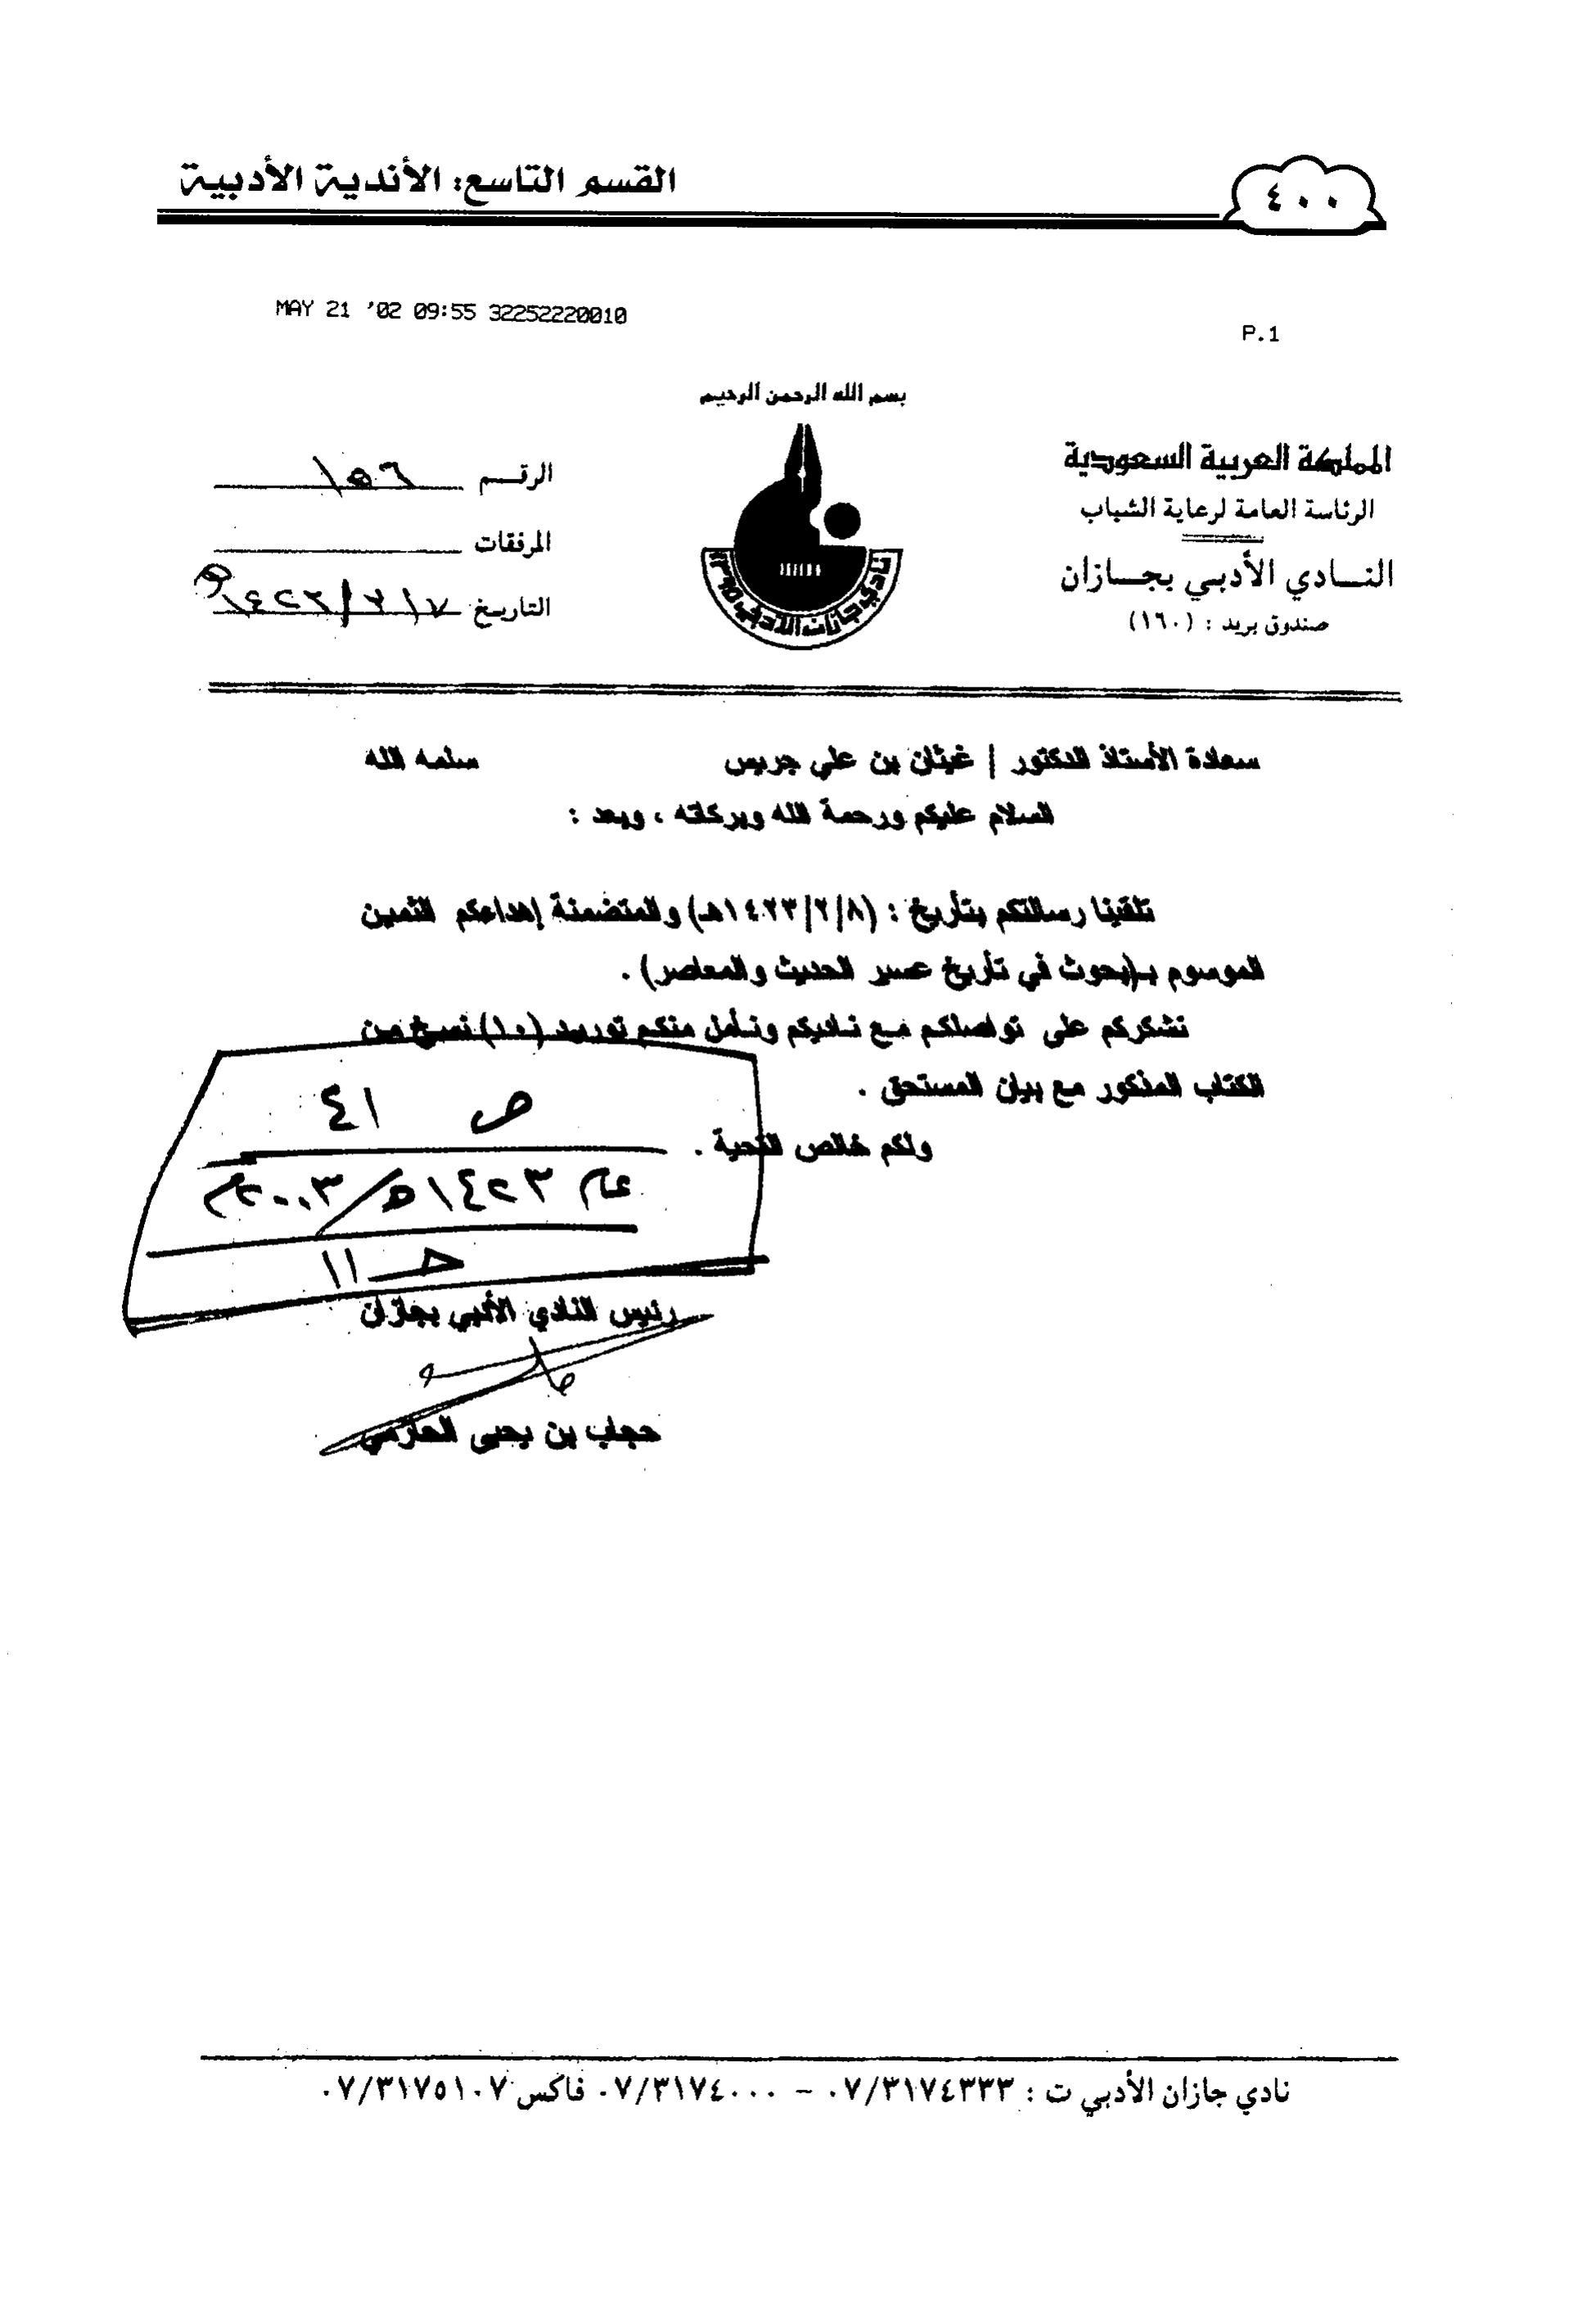 القسم التاسع: الأندية الأدبية
٤٠٠
MAY 21 '02 09:55 32252220010
P.1
بسم الله الرحمن الرحيم
المملكة العربية السعودية
الرئاسة العامة لرعاية الشباب
النادي الأدبي بجازان
صندوق بريد : (١٦٠)
الرقم ١٥٦
المرفقات
التاريخ
نادي جازان الأدبي ١٣٩٥
سعادة الأستاذ الدكتور / غيثان بن علي جريس سلمه الله
السلام عليكم ورحمة الله وبركاته ، وبعد :
تلقينا رسالتكم بتأريخ : (١٤٢٣/٢/٨هـ) والمتضمنة إهداءكم الثمين
الموسوم بـ(بحوث في تأريخ عسير الحديث والمعاصر) .
نشكركم على تواصلكم مع ناديكم ونأمل منكم توريد (١٠) نسخ من
الكتاب المذكور مع بيان المستحق .
ولكم خالص التحية .
ص ٤١
عام ١٤٢٣ه/٢٠٠٣م
حـ ١١
رئيس النادي الأدبي بجازان
حجاب بن يحيى الحازمي
نادي جازان الأدبي ت : ٠٧/٣١٧٤٣٣٣ – ٠٧/٣١٧٤٠٠٠ فاكس ٠٧/٣١٧٥١٠٧